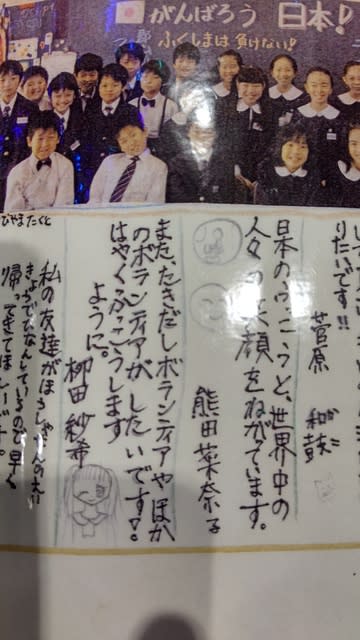 がんばろう 日本!
ふくしまは負けない!
りたいです!!
菅原
日本のふっこうと、世界中の
人々の笑顔をねがています。
熊田菜奈子
また、たきだしボランティアやほか
のボランティアがしたいです!。
はやくふっこうします
ように。
柳田紗希
びやまたくと
私の友達がほうしゃ
きょうでひなんしているので早く
帰ってきてほしいです。